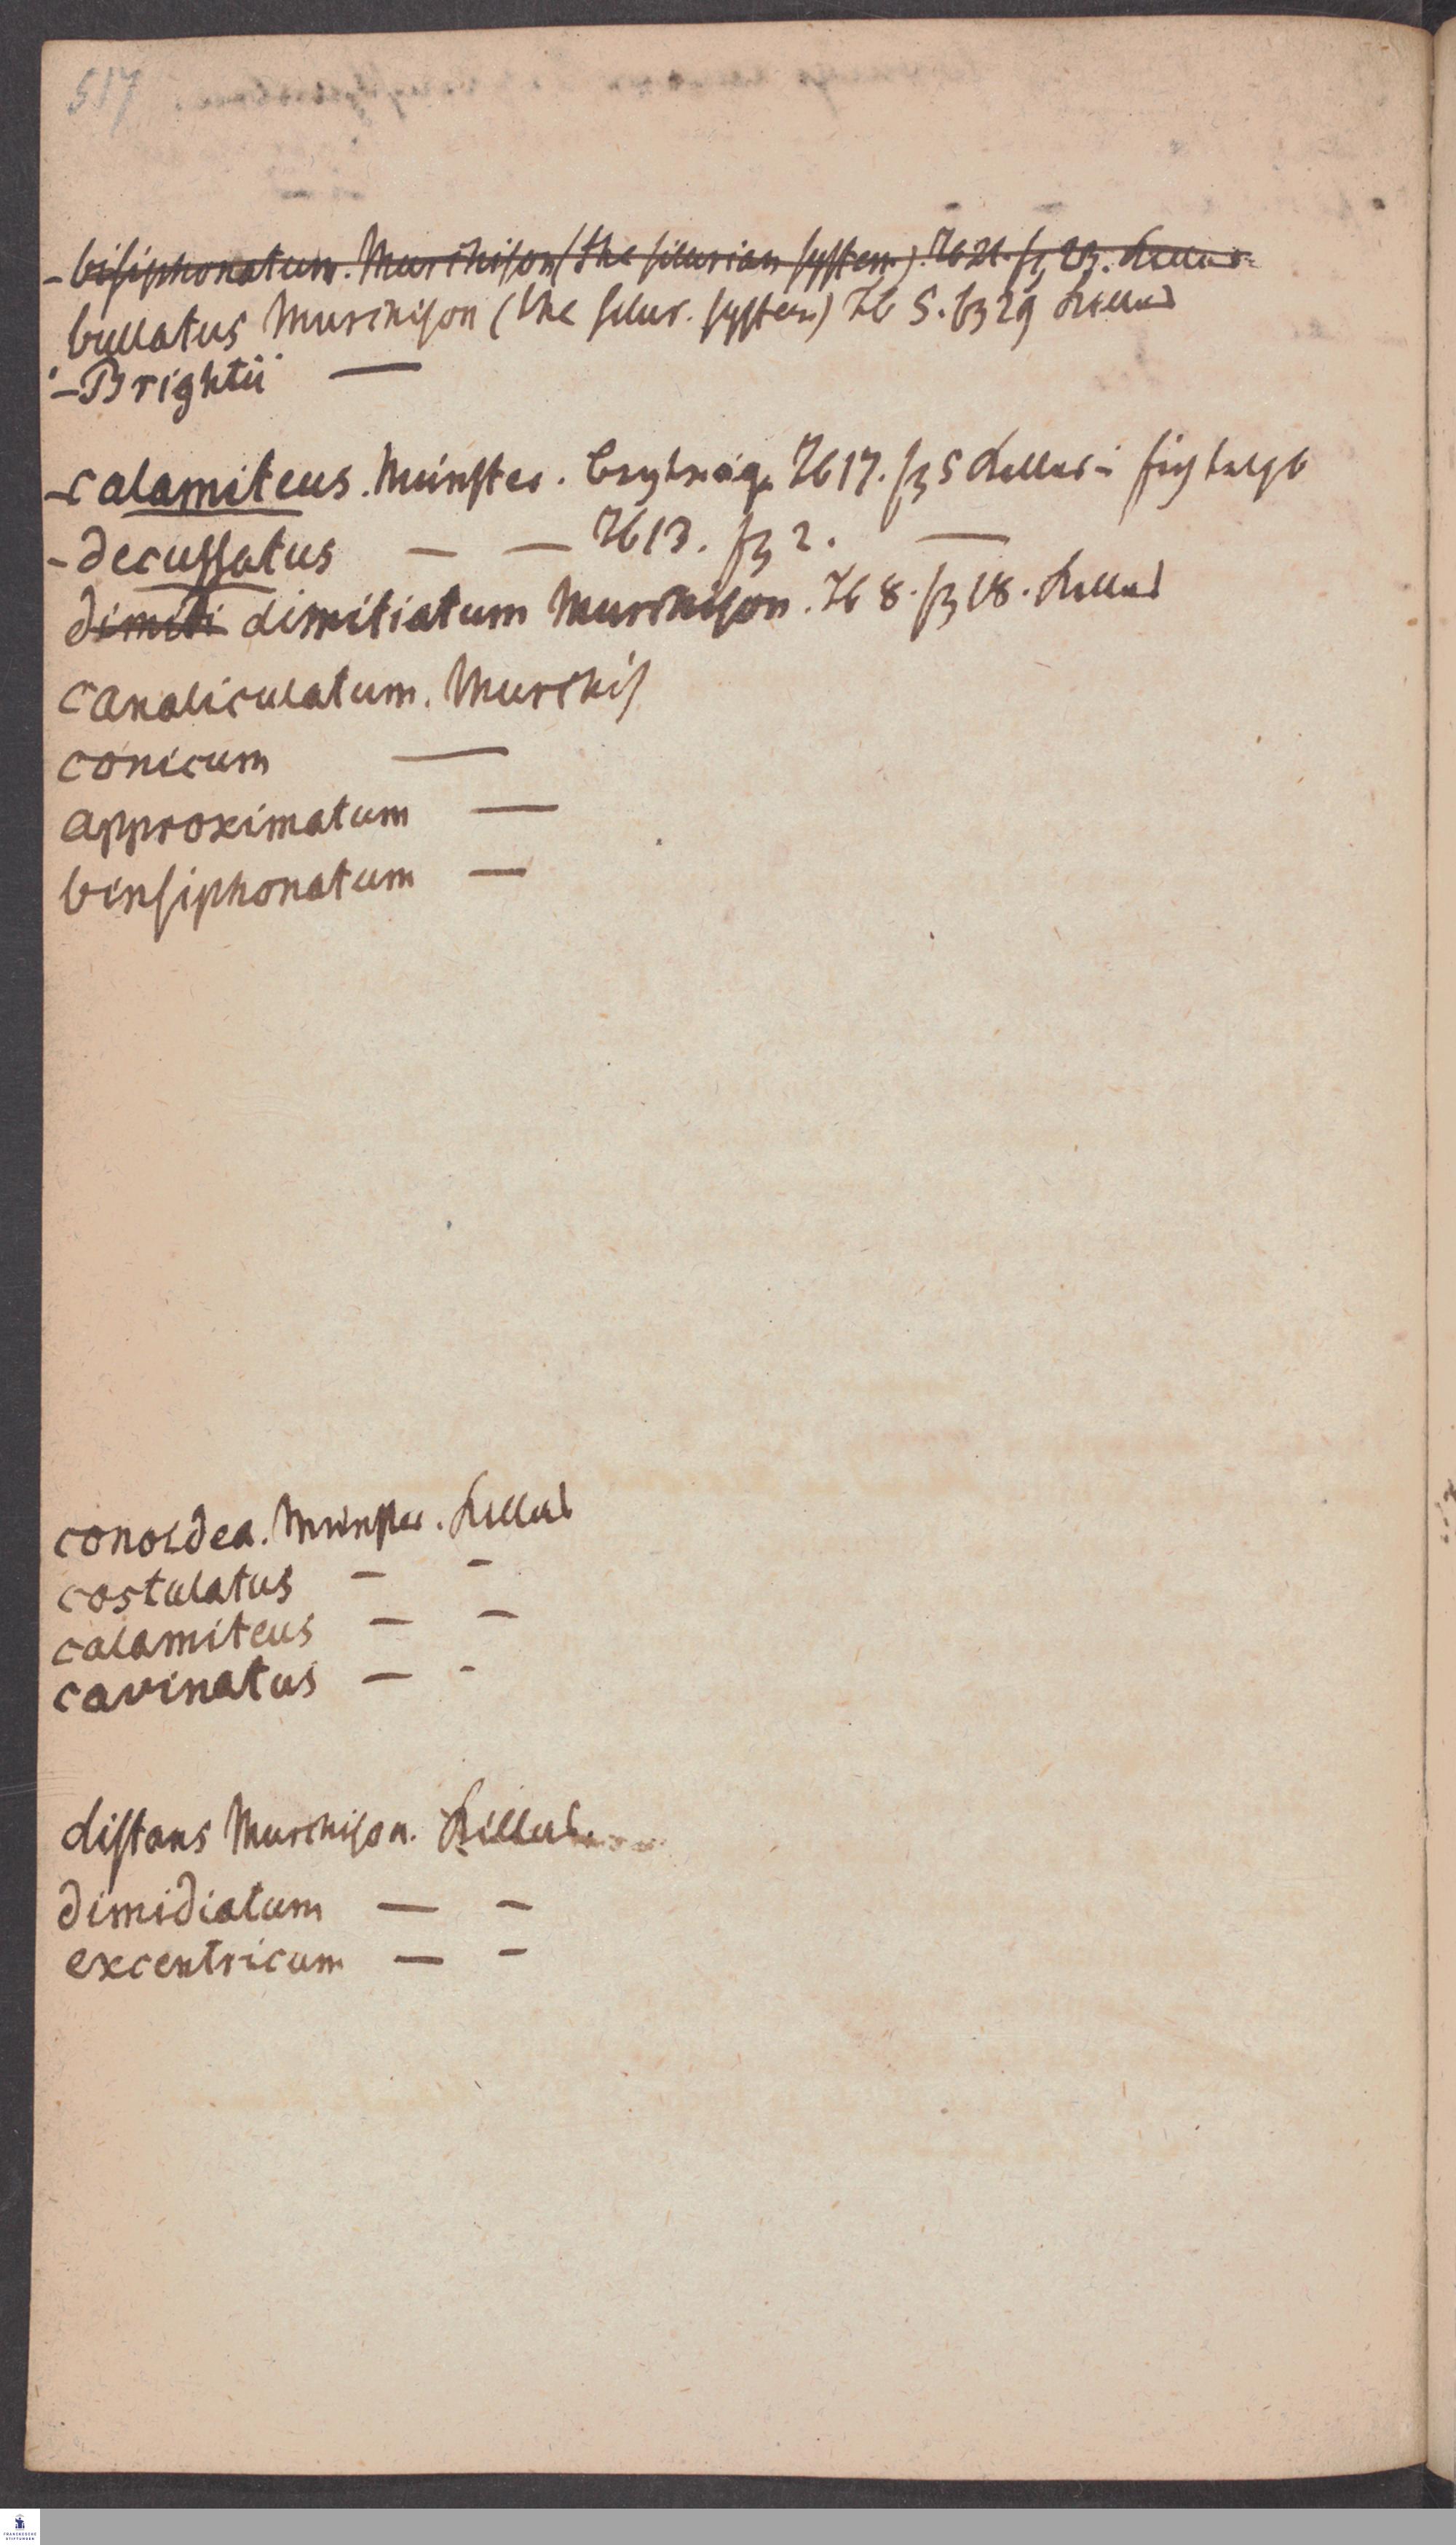 517
- bisiphonatum. Murchison (the silurian system). Tb 21. fg 23. Kellas
bullatus Murchison (the silur. system) Tb 5. fg 29
- Brightii —
- calamiteus. Münster. Beyträge Tb 17. fg 5
- decussatus — — Tb 13. fg 2. —
dimiti dimitiatum Murchison. Tb 8. fg 18.
canaliculatum. Murchis
conicum —
approximatum —
binsiphonatum —
conoidea. Münster.
costulatus — -
calamiteus — -
carinatus — -
distans Murchison.
dimidiatum — -
excentricum — -
FRANCKESCHE
STIFTUNGEN